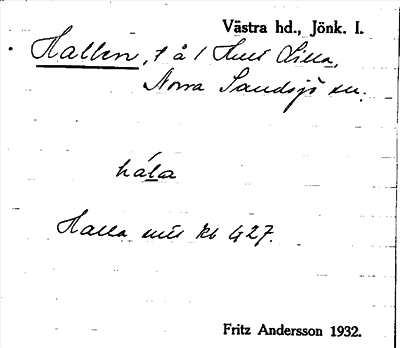 Västra hd., Jönk. l.
Hallen, t å l Hult Lilla,
Norra Sandsjö sn.
hála
Halla mll kb 427.
Fritz Andersson 1932.